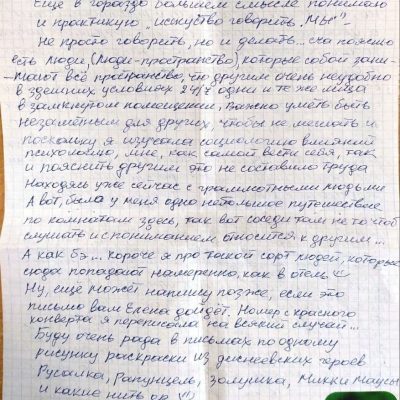 Ещё в гораздо большем смысле понимаю
и практикую "искусство говорить "Мы"-
Не просто говорить, но и делать... сча поясню
есть люди, (люди-пространство) которые собой зани-
мают всё пространство, что другим очень неудобно
в здешних условиях 24/7 одни и те же лица
в замкнутом помещении, Важно уметь быть
незаметным для других, чтобы не мешать и
поскольку я изучала социологию влияний
психологию, мне, как самой вести себя, так
и пояснить другим это не составило труда
Находясь уже сейчас с грамотными людьми
А вот, было у меня одно небольшое путешествие
по комнатам здесь, так вот соседи там не то чтоб
слушать и с пониманием относится к другим...
А как бэ... короче я про такой сорт людей, которые
сюда попадают намеренно, как в отель
Ну, ещё может напишу позже, если это
письмо вам Елена дойдёт. Номер с красного
конверта я переписала на всякий случай...
Буду очень рада в письмах по одному
рисунку раскраски из диснеевских героев
Русалка, Рапунцель, Золушка, Микки Маусы
и какие нить др.